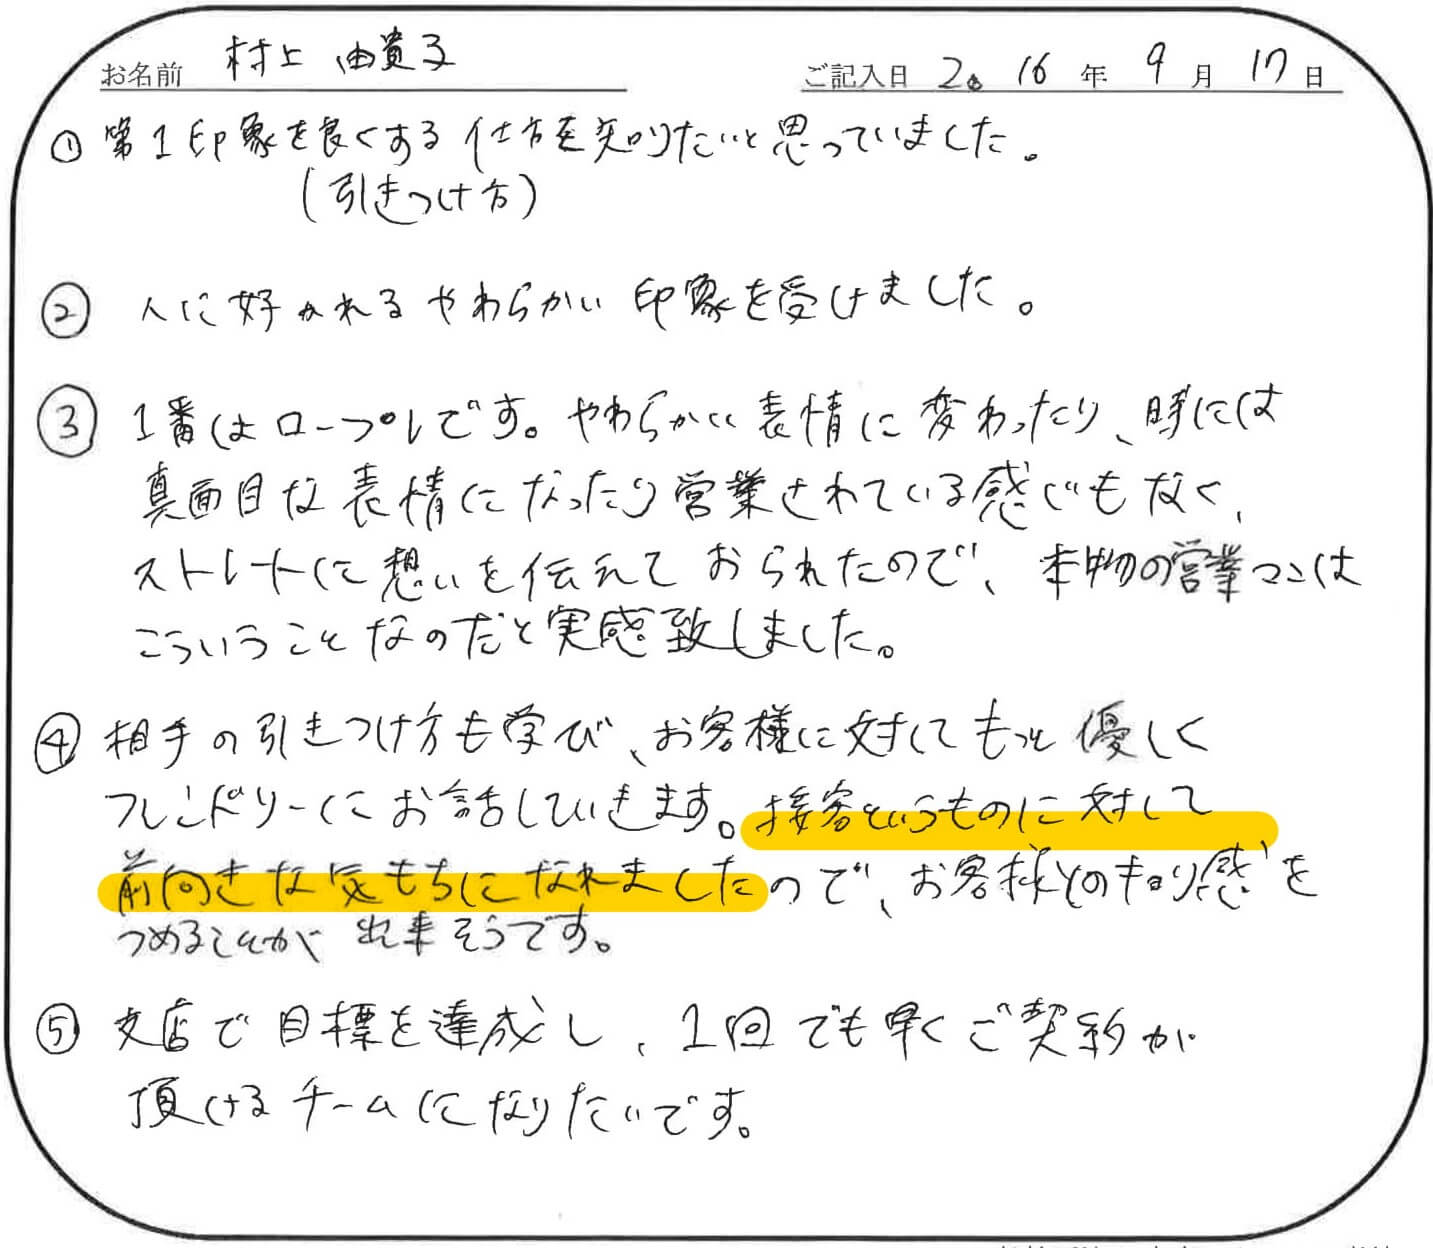 お名前 村上 由貴子 ご記入日 2016年9月17日
① 第1印象を良くする仕方を知りたいと思っていました。
(引きつけ方)
② 人に好かれるやわらかい印象を受けました。
③ 1番はロープレです。やわらかい表情に変わったり、時には
真面目な表情になったり営業されている感じもなく、
ストレートに想いを伝えておられたので、本物の営業マンは
こういうことなのだと実感致しました。
④ 相手の引きつけ方も学び、お客様に対してもっと優しく
フレンドリーにお話ししていきます。接客というものに対して
前向きな気もちになれましたので、お客様との距り感を
つめることが出来そうです。
⑤ 支店で目標を達成し、1回でも早くご契約が
頂けるチームになりたいです。